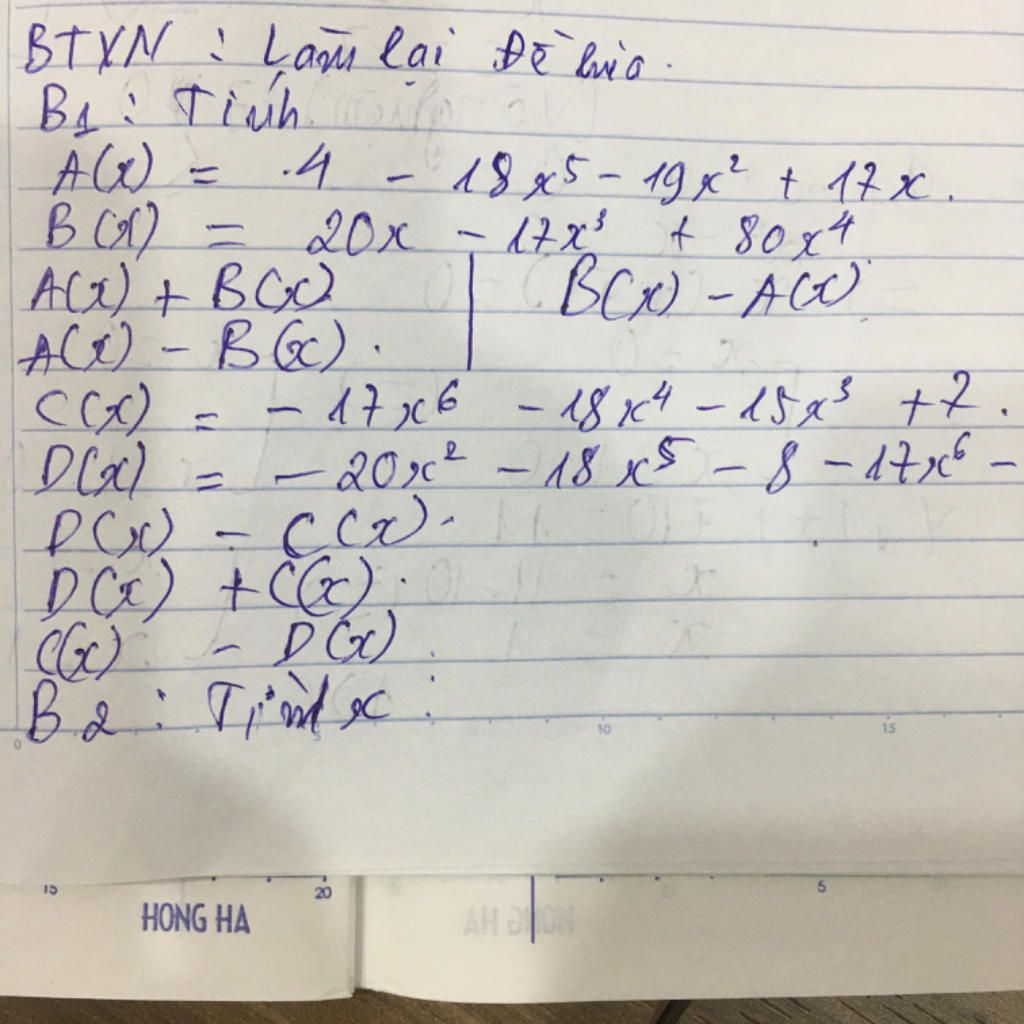 BTVN : Làm lại Đề lúa.
B1 : Tính
A(x) = 4 - 18x⁵ - 19x² + 17x.
B(x) = 20x - 17x³ + 80x⁴
A(x) + B(x) | B(x) - A(x)
A(x) - B(x).
C(x) = - 17x⁶ - 18x⁴ - 15x³ + 7.
D(x) = - 20x² - 18x⁵ - 8 - 17x⁶ -
D(x) - C(x).
D(x) + C(x).
C(x) - D(x).
B2 : Tìm x :
0 5 10 15
15 20 5
HONG HA